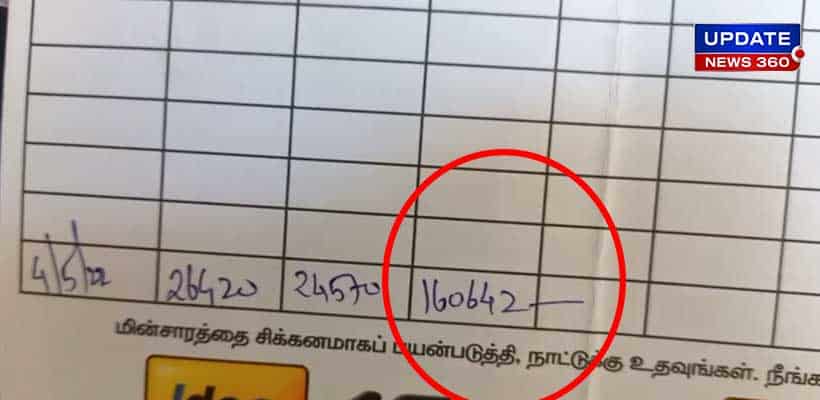 UPDATE
NEWS 360
4/5/22 26420 24570 160642 —
மின்சாரத்தை சிக்கனமாகப் பயன்படுத்தி, நாட்டுக்கு உதவுங்கள். நீங்க
Idea